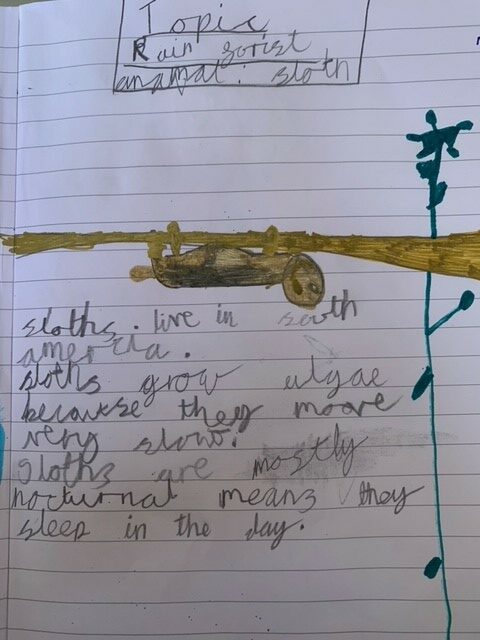 Topic
Rain forist
anamal: sloth
sloths. live in south
america.
sloths grow algae
because they moove
very slow.
sloths are mostly
nocturnal means they
sleep in the day.